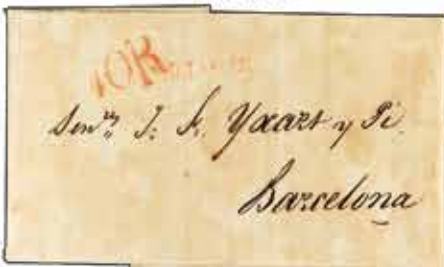 10R
Senr. J. A. Yxart y Pi.
Barcelona